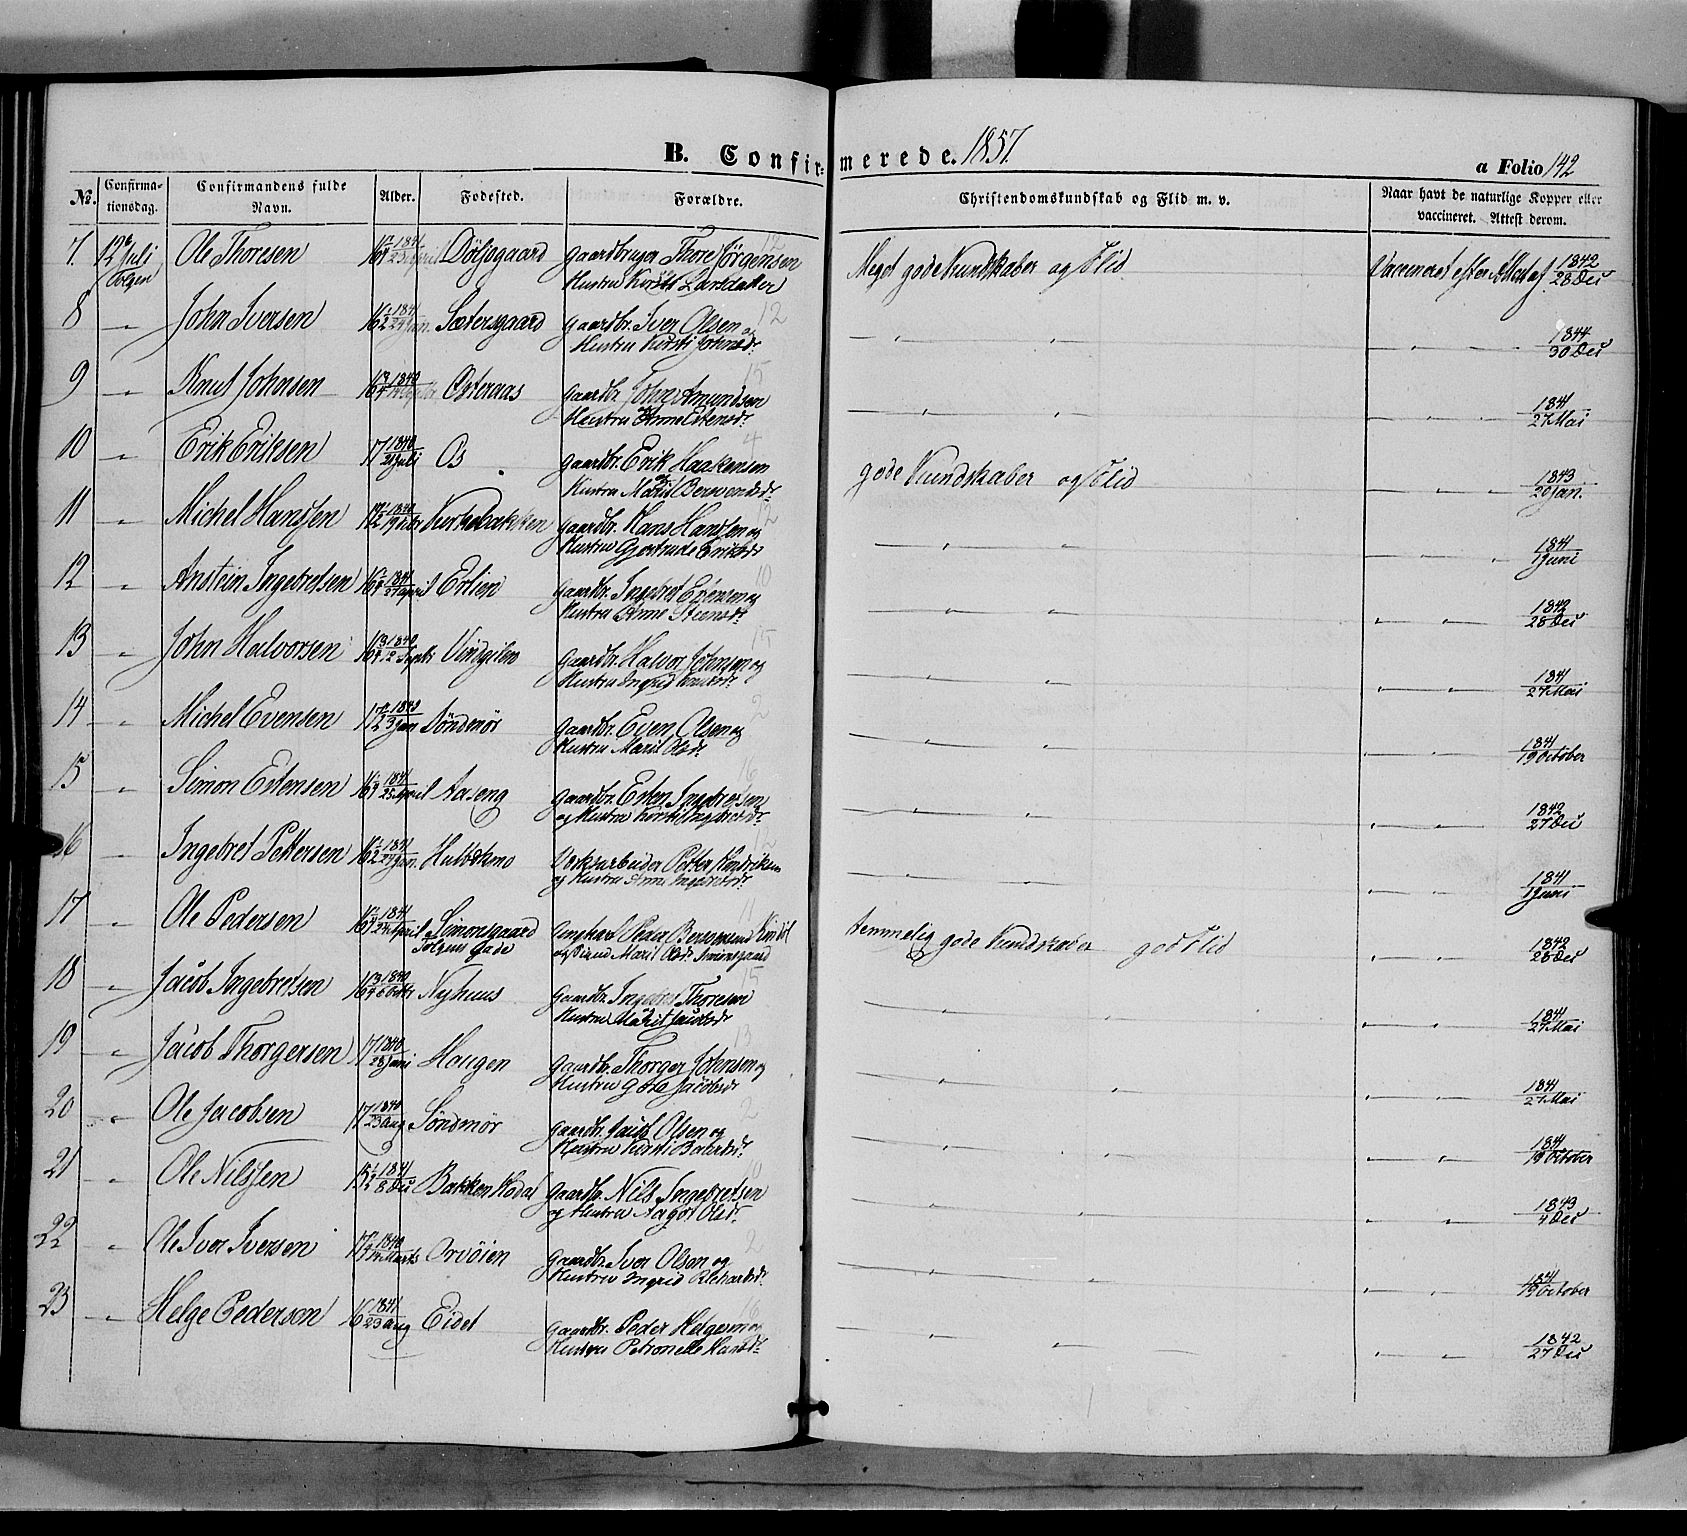 B. Confirmerede. 1857.
a Folio 142
No. Confirmationsdag. Confirmandens fulde Navn. Alder. Fødested. Forældre. Christendomskundskab og Flid m. v. Naar havt de naturlige Kopper eller vaccineret. Attest derom.
7. 12te Juli Ole Thoresen 16 1841 Gaardbruger Thore Jörgensen 12 Meget gode Kundskaber og Flid Vaccineret efter Attest af 1842
Tolgen Hustru Kirsti Larsdatter 28 Dec
8 " John Iversen 16 1841 24 Jan. Sætersgaard Gaardbr. Iver Olsen og 12 " " 1844
Hustru Kirsti Johnsd. 30 Dec
9 " Knut Johnsen 16 1840 Østeraas Gaardbr. John Amundsen 15 " " 1841
Hustru Anne Estensdr. 27 Mai
10 " Erik Eriksen 17 1840 Juli Os Gaardbr. Erik Haakensen 4 gode Kundskaber og Flid 1843
Hustru Marit 20 Jan.
11 " Michel Hanssen 1840 Kirkebakken Gaardbr. Hans Hanssen og 12 " " 1841
Hustru Gjertrude 1 Juni
12 " Anstein Ingebretsen 16 1841 April Erlien Gaardbr. Ingebret Estensen og 10 " " 1842
Hustru Anne 28 Dec
13 " John Halvorsen 16 1840 2 Septr Vingelen Gaardbr. Halvor Johnsen og 15 " " 1841
Hustru Ingrid 27 Mai
14 " Michel Evensen 3 Jan Söndmör Gaardbr. Even Olsen og 2 " " 1841
Hustru Marit Olsdr. 19 October
15 " Simon Estensen 16 1841 25 April Aaseng Gaardbr. Esten Ingebretsen 16 " " 1842
og Hustru Kirsti 27 Dec
16 " Ingebret Pettersen 16 1841 Jan. Gaardbr. Petter " " 1841
og Hustru Anne 1 Juni
17 " Ole Pedersen 16 1841 24 April Simensgaard Ungkarl Peder 11 temmelig gode Kundskaber god Flid 1842
Marit Olsdr. Simensgaard 28 Dec
18 " Jacob Ingebretsen 16 1840 6 Octbr Nyhuus Gaardbr. Ingebret Thoresen 15 " " 1841
Hustru Marit Jacobsdr 27 Mai
19 " Jacob Thorgersen 17 1840 28 Juni Haugen Gaardbr. Thorger Johnsen og 13 " " 1841
Hustru Göra Jacobsdr 27 Mai
20 " Ole Jacobsen 17 1840 23 Aug Söndmör Gaardbr. Jacob Olsen og 2 " " 1841
Hustru Kirsti 19 October
21 " Ole Nilssen 15 1841 8 Dec Bakken Hodal Gaardbr. Nils Ingebretsen 10 " " 1843
og Hustru Aagot Olsdr. 4 Dec
22 " Ole Iver Iversen 17 1840 14 Marts Orvöien Gaardbr. Iver Olsen og 2 " " 1841
Hustru Ingrid Richardsdr. 19 October
23 " Helge Pederson 16 1841 23 Aug Eidet Gaardbr. Peder Helgesen og 16 " " 1842
Hustru Petronelle Hansdr. 27 Dec